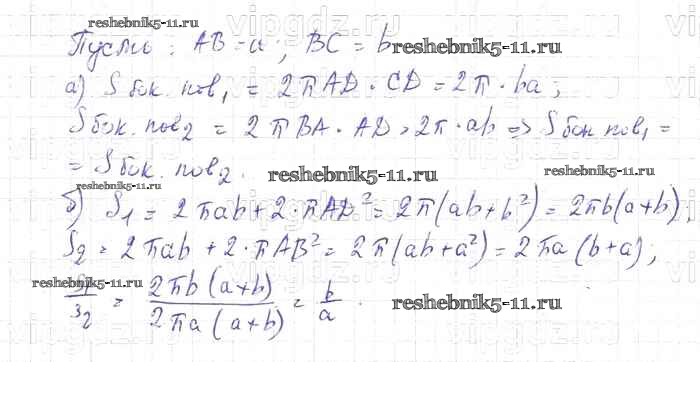 reshebnik5-11.ru
Пусть: AB = a; BC = b reshebnik5-11.ru
а) S бок. пов₁ = 2π AD · CD = 2π · ba;
S бок. пов₂ = 2π BA · AD = 2π · ab => S бок. пов₁ =
= S бок. пов₂. reshebnik5-11.ru reshebnik5-11.ru
reshebnik5-11.ru
б) S₁ = 2πab + 2·πAD² = 2π(ab + b²) = 2πb(a + b);
S₂ = 2πab + 2·πAB² = 2π(ab + a²) = 2πa(b + a);
reshebnik5-11.ru
S₁/S₂ = 2πb(a+b)/2πa(a+b) = b/a. reshebnik5-11.ru
vipgdz.ru